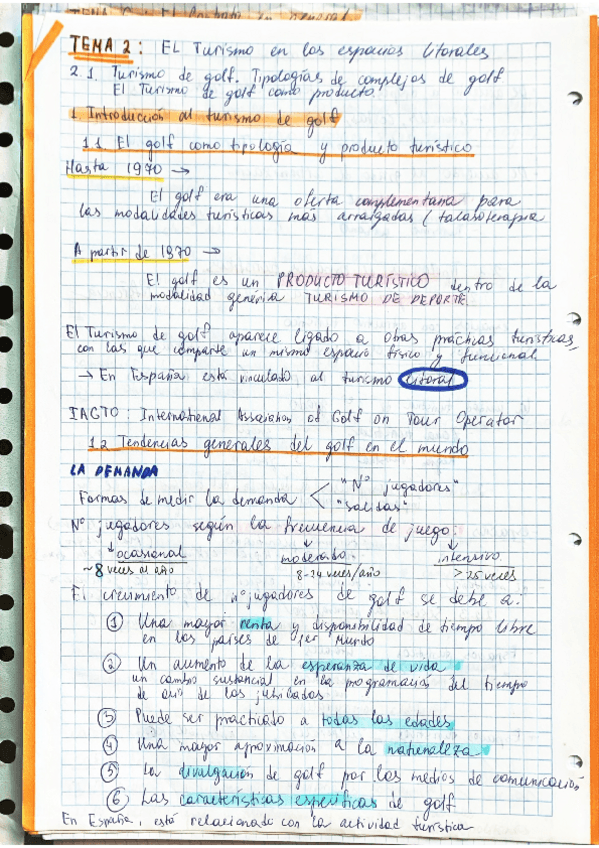 TEMA 2: EL Turismo en los espacios litorales
2.1. Turismo de golf. Tipologías de complejos de golf
El Turismo de golf como producto.
1. Introducción al turismo de golf
1.1. El golf como tipología y producto turístico
Hasta 1970 →
El golf era una oferta complementaria para
las modalidades turísticas más arraigadas (talasoterapia
A partir de 1970 →
El golf es un PRODUCTO TURÍSTICO dentro de la
modalidad genérica TURISMO DE DEPORTE.
El Turismo de golf aparece ligado a otras prácticas turísticas,
con las que comparte un mismo espacio físico y funcional
→ En España está vinculado al turismo litoral
IAGTO: International Association of Golf on Tour Operator
1.2 Tendencias generales del golf en el mundo
LA DEMANDA
Formas de medir la demanda < "Nº jugadores"
"Salidas"
Nº jugadores según la frecuencia de juego:
↓ ocasional ↓ moderado ↓ intensivo
~8 veces al año 8-24 veces/año >25 veces
El crecimiento de nº jugadores de golf se debe a:
① Una mayor renta y disponibilidad de tiempo libre
en los países de 1er Mundo
② Un aumento de la esperanza de vida
un cambio sustancial en la programación del tiempo
de ocio de los jubilados
③ Puede ser practicado a todas las edades
④ Una mayor aproximación a la naturaleza
⑤ La divulgación de golf por los medios de comunicación
⑥ Las características específicas de golf
En España, está relacionado con la actividad turística